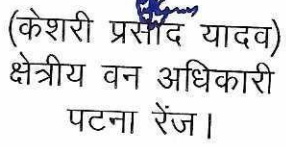 (केशरी प्रसाद यादव)
क्षेत्रीय वन अधिकारी
पटना रेंज।